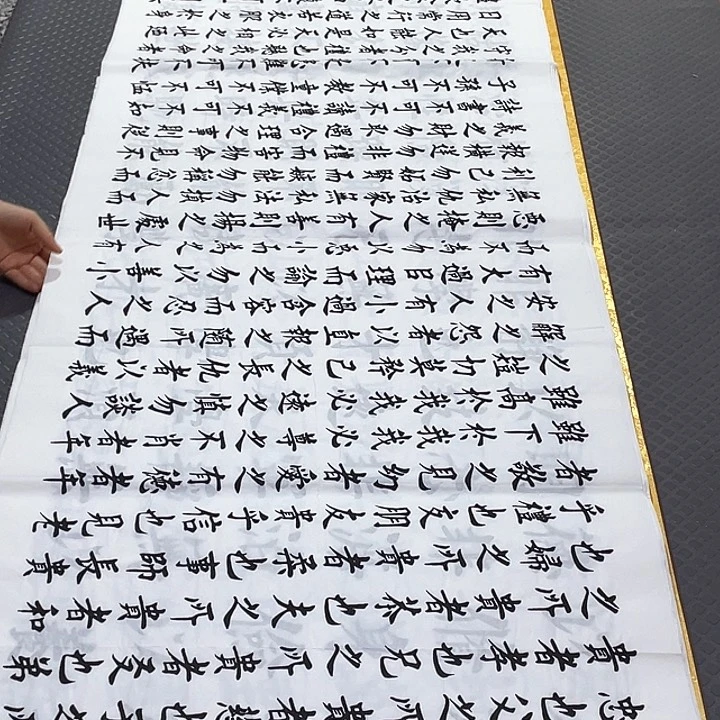 忠也父之所貴者慈也子之所
貴者孝也兄之所貴者友也弟
之所貴者恭也夫之所貴者和
也婦之所貴者柔也事師長貴
乎禮也交朋友貴乎信也見老
者敬之見幼者愛之有德者年
雖下於我我必尊之不肖者年
雖高於我我必遠之慎勿談人
之短切莫矜己之長仇者以義
解之怨者以直報之隨所遇而
安之人有小過含容而忍之人
有大過以理而諭之勿以善小
而不為勿以惡小而為之人有
惡則掩之人有善則揚之處世
無私仇治家無私法勿損人而
利己勿妬賢嫉能勿稱忿而
報橫逆勿非禮而害物命見不
義之財勿取遇合理之事則從
詩書不可不讀禮義不可不知
子孫不可不教童僕不可不恤
不可不扶
守我之分者禮也聽我之命者
天也人能如是天必相之此
日用常行之道若衣服之於身